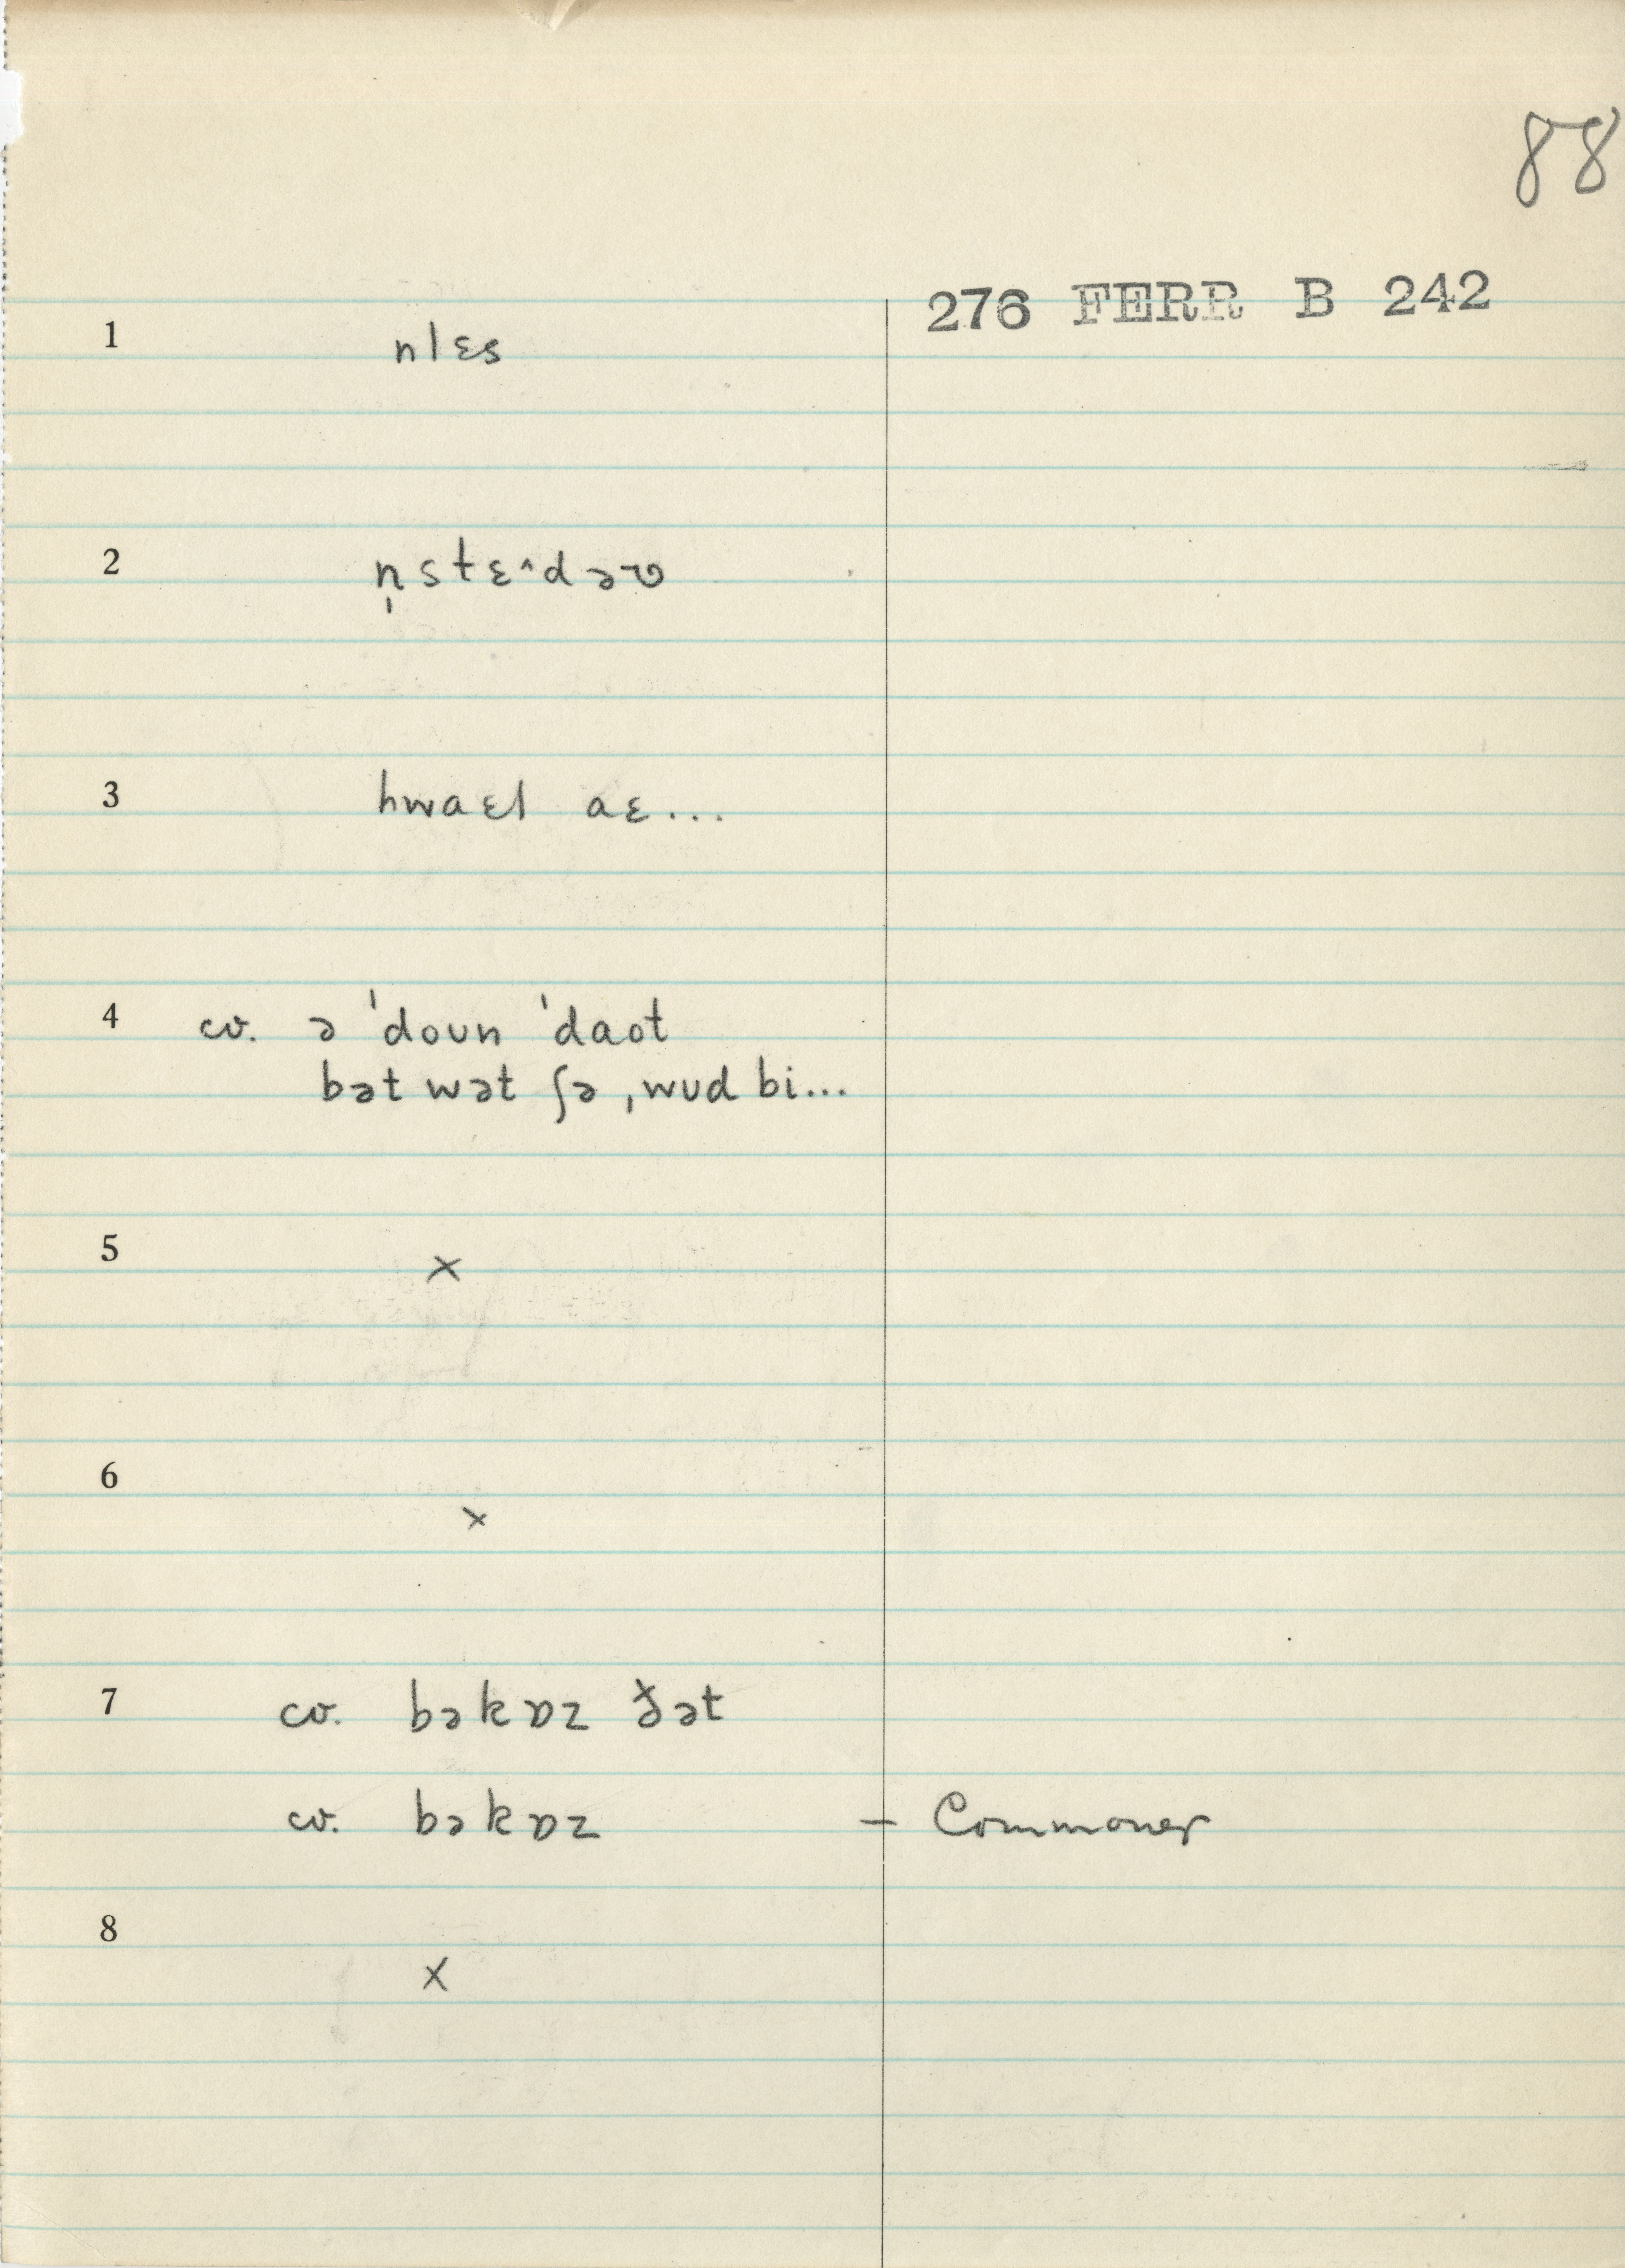 88
276 FERR B 242
1 nlɛs
2 n̩stɛ^dəʊ
3 hwaɛl aɛ...
4 cv. ə ˈdoun ˈdaot
bət wət ʃə ˌwud bi...
5 ×
6 ×
7 cv. bəkɒz ðət
cv. bəkɒz – Commoner
8 ×